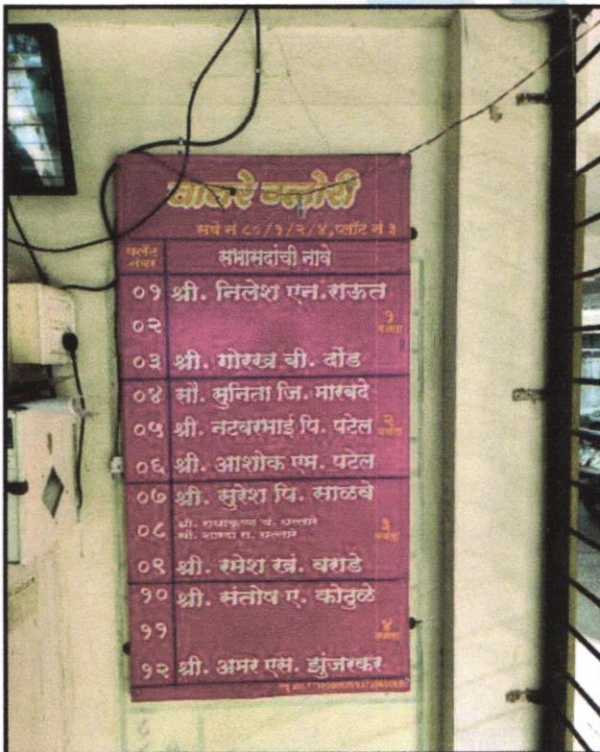 सर्वे नं ८०/१/२/४, प्लॉट नं ३
फ्लॅट नंबर सभासदांची नावे
०१ श्री. निलेश एन. राऊत
०२
१ मजला
०३ श्री. गोरख बी. दोंड
०४ सौ. सुनिता जि. मारवदे
०५ श्री. नटवरभाई पि. पटेल २ मजला
०६ श्री. आशोक एम. पटेल
०७ श्री. सुरेश पि. साळवे
०८ श्री. राधाकृष्ण
सौ. शारदा रा.
३ मजला
०९ श्री. रमेश खं. वराडे
१० श्री. संतोष ए. कोठुळे
११
४ मजला
१२ श्री. अमर एस. झुंजरकर